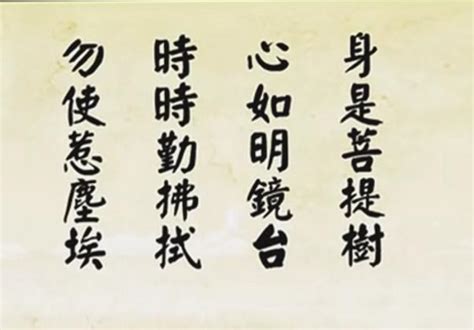 身是菩提樹
心如明鏡台
時時勤拂拭
勿使惹塵埃